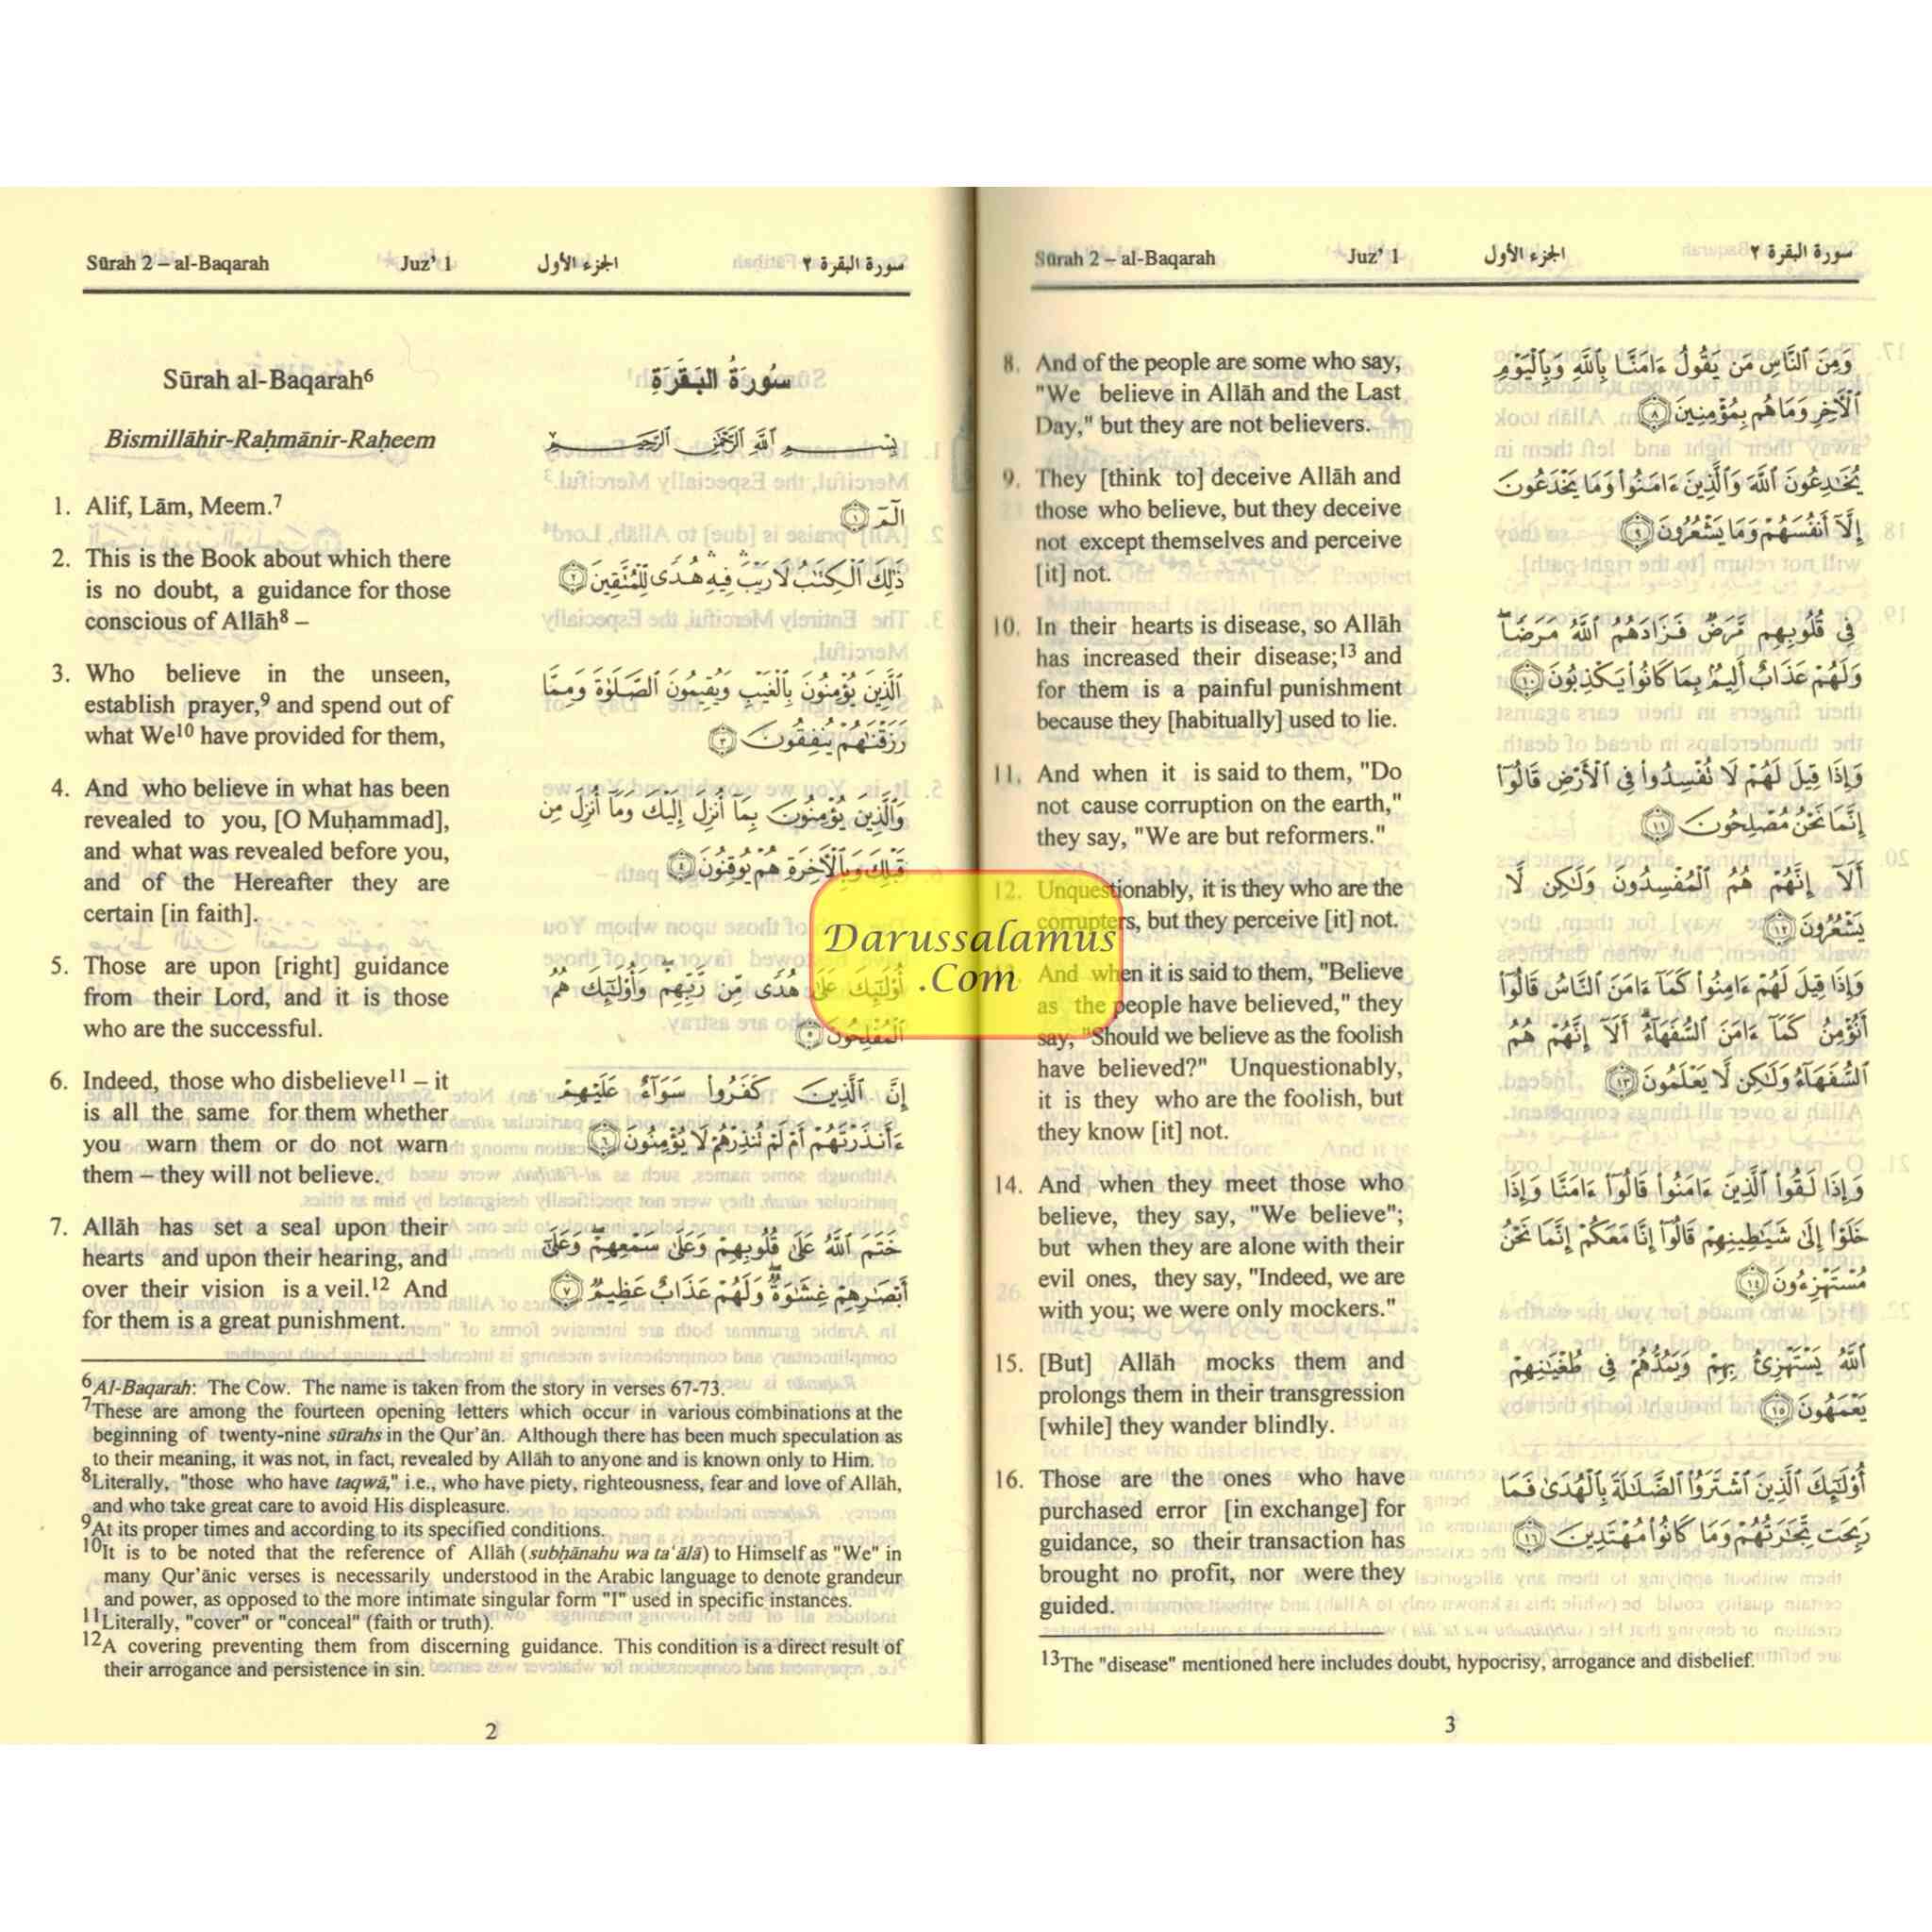 Sūrah 2 – al-Baqarah Juz' 1 الجزء الأول سورة البقرة ٢
Sūrah al-Baqarah⁶
Bismillāhir-Raḥmānir-Raḥeem
1. Alif, Lām, Meem.⁷
2. This is the Book about which there
is no doubt, a guidance for those
conscious of Allāh⁸ –
3. Who believe in the unseen,
establish prayer,⁹ and spend out of
what We¹⁰ have provided for them,
4. And who believe in what has been
revealed to you, [O Muḥammad],
and what was revealed before you,
and of the Hereafter they are
certain [in faith].
5. Those are upon [right] guidance
from their Lord, and it is those
who are the successful.
6. Indeed, those who disbelieve¹¹ – it
is all the same for them whether
you warn them or do not warn
them – they will not believe.
7. Allāh has set a seal upon their
hearts and upon their hearing, and
over their vision is a veil.¹² And
for them is a great punishment.
سُورَةُ البَقَرَةِ
بِسْمِ ٱللَّهِ ٱلرَّحْمَٰنِ ٱلرَّحِيمِ
الٓمٓ ١
ذَٰلِكَ ٱلْكِتَٰبُ لَا رَيْبَ ۛ فِيهِ ۛ هُدًى لِّلْمُتَّقِينَ ٢
ٱلَّذِينَ يُؤْمِنُونَ بِٱلْغَيْبِ وَيُقِيمُونَ ٱلصَّلَوٰةَ وَمِمَّا
رَزَقْنَٰهُمْ يُنفِقُونَ ٣
وَٱلَّذِينَ يُؤْمِنُونَ بِمَآ أُنزِلَ إِلَيْكَ وَمَآ أُنزِلَ مِن
قَبْلِكَ وَبِٱلْأَخِرَةِ هُمْ يُوقِنُونَ ٤
أُو۟لَٰٓئِكَ عَلَىٰ هُدًى مِّن رَّبِّهِمْ ۖ وَأُو۟لَٰٓئِكَ هُمُ
ٱلْمُفْلِحُونَ ٥
إِنَّ ٱلَّذِينَ كَفَرُوا۟ سَوَآءٌ عَلَيْهِمْ
ءَأَنذَرْتَهُمْ أَمْ لَمْ تُنذِرْهُمْ لَا يُؤْمِنُونَ ٦
خَتَمَ ٱللَّهُ عَلَىٰ قُلُوبِهِمْ وَعَلَىٰ سَمْعِهِمْ ۖ وَعَلَىٰٓ
أَبْصَٰرِهِمْ غِشَٰوَةٌ ۖ وَلَهُمْ عَذَابٌ عَظِيمٌ ٧
⁶Al-Baqarah: The Cow. The name is taken from the story in verses 67-73.
⁷These are among the fourteen opening letters which occur in various combinations at the
beginning of twenty-nine sūrahs in the Qur'ān. Although there has been much speculation as
to their meaning, it was not, in fact, revealed by Allāh to anyone and is known only to Him.
⁸Literally, "those who have taqwā," i.e., who have piety, righteousness, fear and love of Allāh,
and who take great care to avoid His displeasure.
⁹At its proper times and according to its specified conditions.
¹⁰It is to be noted that the reference of Allāh (subḥānahu wa ta'ālā) to Himself as "We" in
many Qur'ānic verses is necessarily understood in the Arabic language to denote grandeur
and power, as opposed to the more intimate singular form "I" used in specific instances.
¹¹Literally, "cover" or "conceal" (faith or truth).
¹²A covering preventing them from discerning guidance. This condition is a direct result of
their arrogance and persistence in sin.
2
Darussalamus
.Com
Sūrah 2 – al-Baqarah Juz' 1 الجزء الأول سورة البقرة ٢
8. And of the people are some who say,
"We believe in Allāh and the Last
Day," but they are not believers.
9. They [think to] deceive Allāh and
those who believe, but they deceive
not except themselves and perceive
[it] not.
10. In their hearts is disease, so Allāh
has increased their disease;¹³ and
for them is a painful punishment
because they [habitually] used to lie.
11. And when it is said to them, "Do
not cause corruption on the earth,"
they say, "We are but reformers."
12. Unquestionably, it is they who are the
corrupters, but they perceive [it] not.
13. And when it is said to them, "Believe
as the people have believed," they
say, "Should we believe as the foolish
have believed?" Unquestionably,
it is they who are the foolish, but
they know [it] not.
14. And when they meet those who
believe, they say, "We believe";
but when they are alone with their
evil ones, they say, "Indeed, we are
with you; we were only mockers."
15. [But] Allāh mocks them and
prolongs them in their transgression
[while] they wander blindly.
16. Those are the ones who have
purchased error [in exchange] for
guidance, so their transaction has
brought no profit, nor were they
guided.
وَمِنَ ٱلنَّاسِ مَن يَقُولُ ءَامَنَّا بِٱللَّهِ وَبِٱلْيَوْمِ
ٱلْأَخِرِ وَمَا هُم بِمُؤْمِنِينَ ٨
يُخَٰدِعُونَ ٱللَّهَ وَٱلَّذِينَ ءَامَنُوا۟ وَمَا يَخْدَعُونَ
إِلَّآ أَنفُسَهُمْ وَمَا يَشْعُرُونَ ٩
فِى قُلُوبِهِم مَّرَضٌ فَزَادَهُمُ ٱللَّهُ مَرَضًا ۖ
وَلَهُمْ عَذَابٌ أَلِيمٌۢ بِمَا كَانُوا۟ يَكْذِبُونَ ١٠
وَإِذَا قِيلَ لَهُمْ لَا تُفْسِدُوا۟ فِى ٱلْأَرْضِ قَالُوٓا۟
إِنَّمَا نَحْنُ مُصْلِحُونَ ١١
أَلَآ إِنَّهُمْ هُمُ ٱلْمُفْسِدُونَ وَلَٰكِن لَّا
يَشْعُرُونَ ١٢
وَإِذَا قِيلَ لَهُمْ ءَامِنُوا۟ كَمَآ ءَامَنَ ٱلنَّاسُ قَالُوٓا۟
أَنُؤْمِنُ كَمَآ ءَامَنَ ٱلسُّفَهَآءُ ۗ أَلَآ إِنَّهُمْ هُمُ
ٱلسُّفَهَآءُ وَلَٰكِن لَّا يَعْلَمُونَ ١٣
وَإِذَا لَقُوا۟ ٱلَّذِينَ ءَامَنُوا۟ قَالُوٓا۟ ءَامَنَّا وَإِذَا
خَلَوْا۟ إِلَىٰ شَيَٰطِينِهِمْ قَالُوٓا۟ إِنَّا مَعَكُمْ إِنَّمَا نَحْنُ
مُسْتَهْزِءُونَ ١٤
ٱللَّهُ يَسْتَهْزِئُ بِهِمْ وَيَمُدُّهُمْ فِى طُغْيَٰنِهِمْ
يَعْمَهُونَ ١٥
أُو۟لَٰٓئِكَ ٱلَّذِينَ ٱشْتَرَوُا۟ ٱلضَّلَٰلَةَ بِٱلْهُدَىٰ فَمَا
رَبِحَت تِّجَٰرَتُهُمْ وَمَا كَانُوا۟ مُهْتَدِينَ ١٦
¹³The "disease" mentioned here includes doubt, hypocrisy, arrogance and disbelief.
3